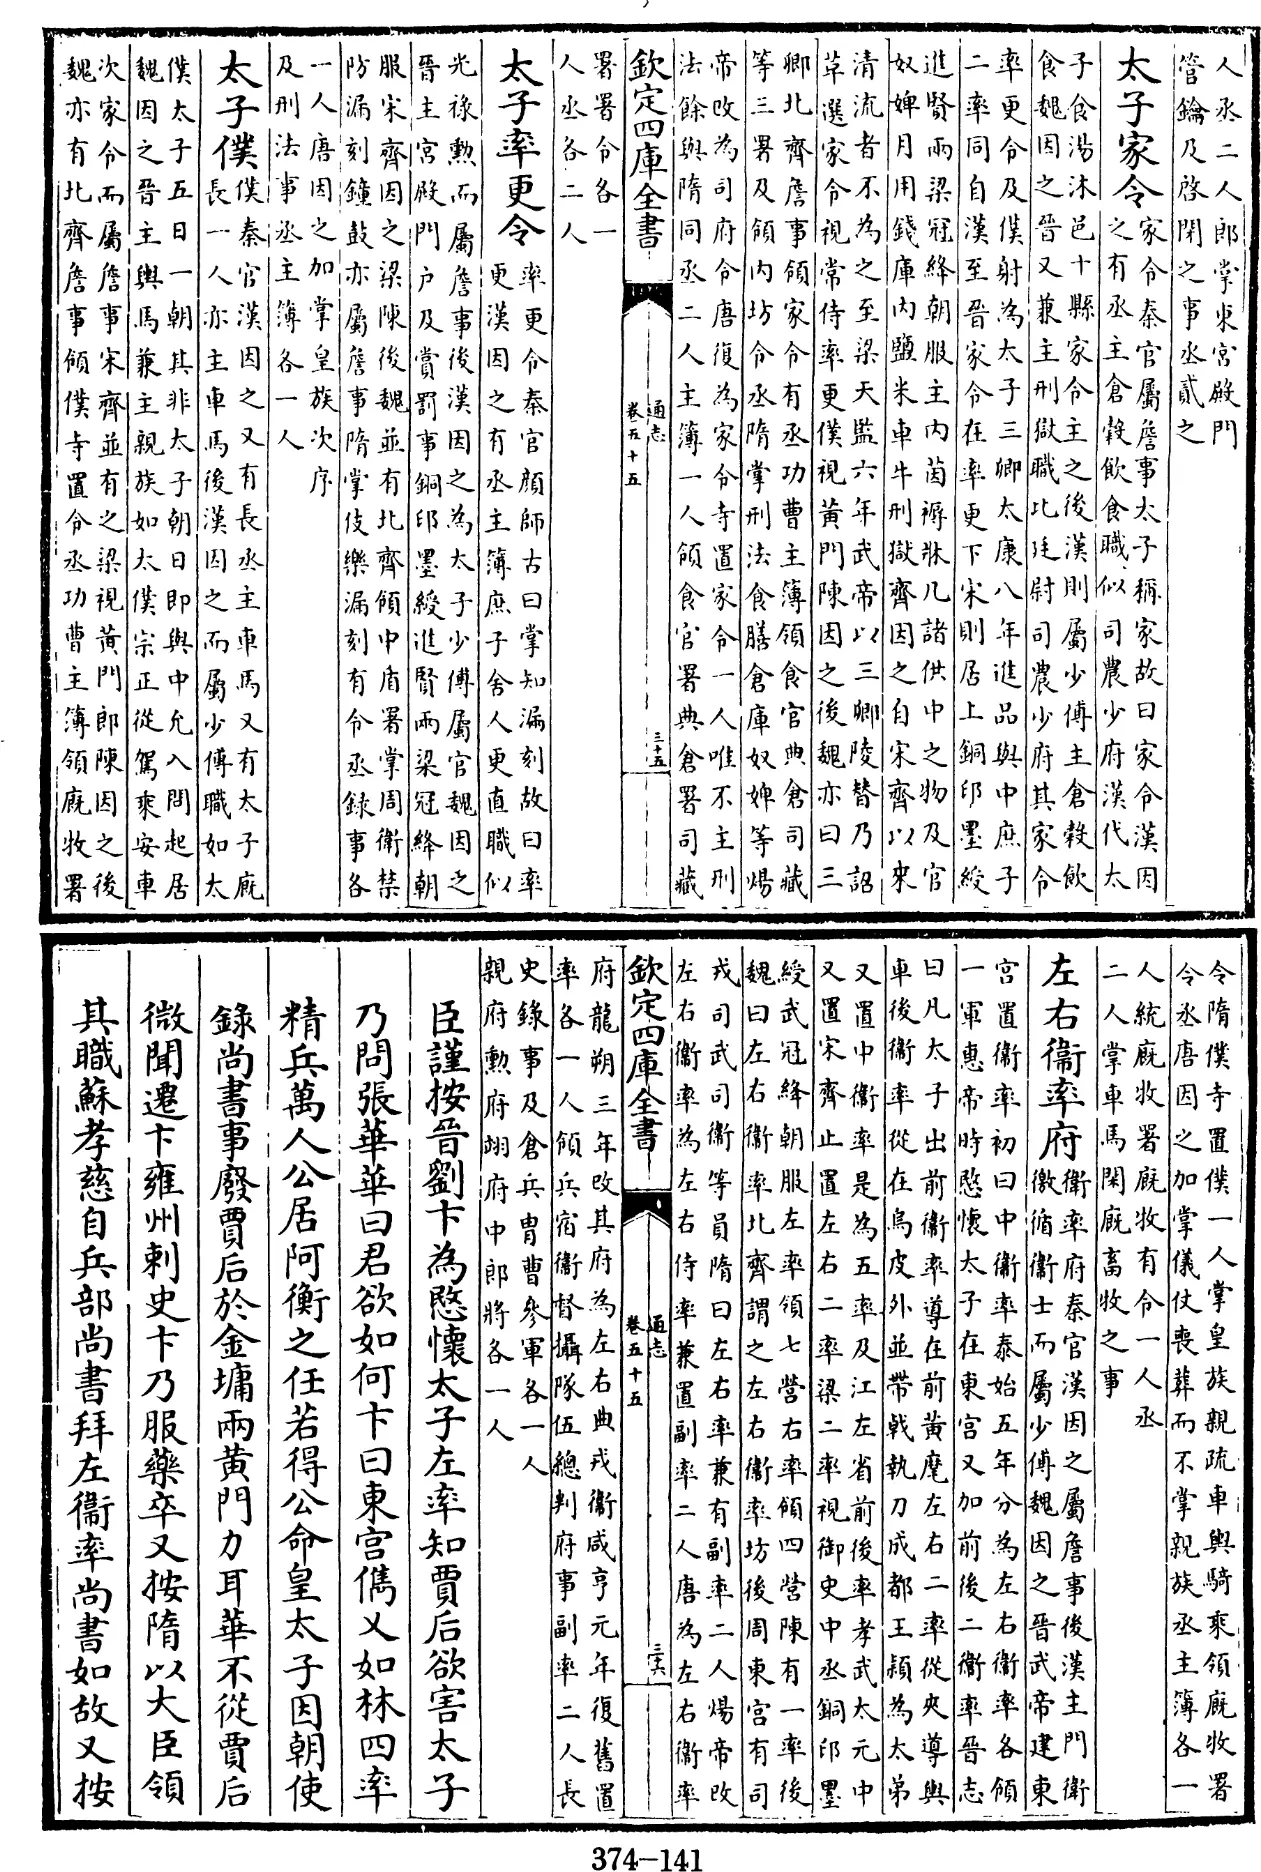 人丞二人郎掌東宮殿門
管鑰及啓閉之事丞貳之
太子家令
家令秦官屬詹事太子稱家故曰家令漢因
之有丞主倉榖飲食職似司農少府漢代太
子食湯沐邑十縣家令主之後漢則屬少傅主倉榖飲
食魏因之晉又兼主刑獄職比廷尉司農少府其家令
率更令及僕射為太子三卿太康八年進品與中庶子
二率同自漢至晉家令在率更下宋則居上銅印墨綬
進賢兩梁冠絳朝服主内茵褥牀几諸供中之物及官
奴婢月用錢庫内鹽米車牛刑獄齊因之自宋齊以來
清流者不為之至梁天監六年武帝以三卿陵替乃詔
草選家令視常侍率更僕視黃門陳因之後魏亦曰三
卿北齊詹事領家令有丞功曹主簿領食官典倉司藏
等三署及領内坊令丞隋掌刑法食膳倉庫奴婢等煬
帝改為司府令唐復為家令寺置家令一人唯不主刑
法餘與隋同丞二人主簿一人領食官署典倉署司藏
欽定四庫全書
通志
卷五十五
三十五
署署令各一
人丞各二人
太子率更令
率更令秦官顔師古曰掌知漏刻故曰率
更漢因之有丞主簿庶子舍人更直職似
光祿勲而屬詹事後漢因之為太子少傅屬官魏因之
晉主宮殿門户及賞罰事銅印墨綬進賢兩梁冠絳朝
服宋齊因之梁陳後魏並有北齊領中盾署掌周衛禁
防漏刻鐘鼓亦屬詹事隋掌伎樂漏刻有令丞錄事各
一人唐因之加掌皇族次序
及刑法事丞主簿各一人
太子僕
僕秦官漢因之又有長丞主車馬又有太子廐
長一人亦主車馬後漢因之而屬少傅職如太
僕太子五日一朝其非太子朝日即與中允入問起居
魏因之晉主輿馬兼主親族如太僕宗正從駕乘安車
次家令而屬詹事宋齊並有之梁視黃門郎陳因之後
魏亦有北齊詹事領僕寺置令丞功曹主簿領廐牧署
令隋僕寺置僕一人掌皇族親疏車輿騎乘領廐牧署
令丞唐因之加掌儀仗喪葬而不掌親族丞主簿各一
人統廐牧署廐牧有令一人丞
二人掌車馬閑廐畜牧之事
左右衛率府
衛率府秦官漢因之屬詹事後漢主門衛
徼循衛士而屬少傅魏因之晉武帝建東
宮置衛率初曰中衛率泰始五年分為左右衛率各領
一軍惠帝時愍懷太子在東宮又加前後二衛率晉志
曰凡太子出前衛率導在前黃麾左右二率從夾導輿
車後衛率從在烏皮外並帶戟執刀成都王頴為太弟
又置中衛率是為五率及江左省前後率孝武太元中
又置宋齊止置左右二率梁二率視御史中丞銅印墨
綬武冠絳朝服左率領七營右率領四營陳有一率後
魏曰左右衛率北齊謂之左右衛率坊後周東宮有司
戎司武司衛等員隋曰左右率兼有副率二人煬帝改
左右衛率為左右侍率兼置副率二人唐為左右衛率
欽定四庫全書
通志
卷五十五
三十六
府龍朔三年改其府為左右典戎衛咸亨元年復舊置
率各一人領兵宿衛督攝隊伍總判府事副率二人長
史錄事及倉兵胄曹參軍各一人
親府勲府翊府中郎將各一人
臣謹按晉劉卞為愍懷太子左率知賈后欲害太子
乃問張華華曰君欲如何卞曰東宮儁乂如林四率
精兵萬人公居阿衡之任若得公命皇太子因朝使
錄尚書事廢賈后於金墉兩黃門力耳華不從賈后
微聞遷卞雍州刺史卞乃服藥卒又按隋以大臣領
其職蘇孝慈自兵部尚書拜左衛率尚書如故又按
374-141